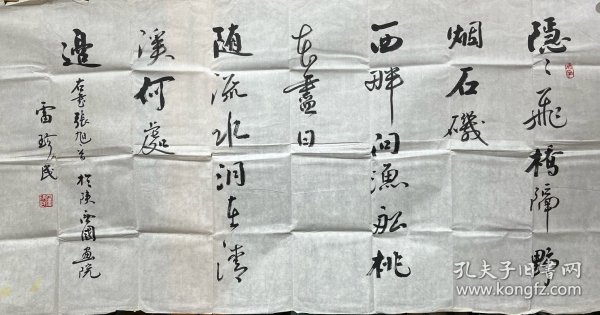 隱〻飛橋隔野
烟石磯
西畔问漁船桃
花盡日
随流水洞在清
溪何處
邊
右书張旭诗 於陕西國画院
雷珍民
孔夫子旧书网
www.kongfz.com